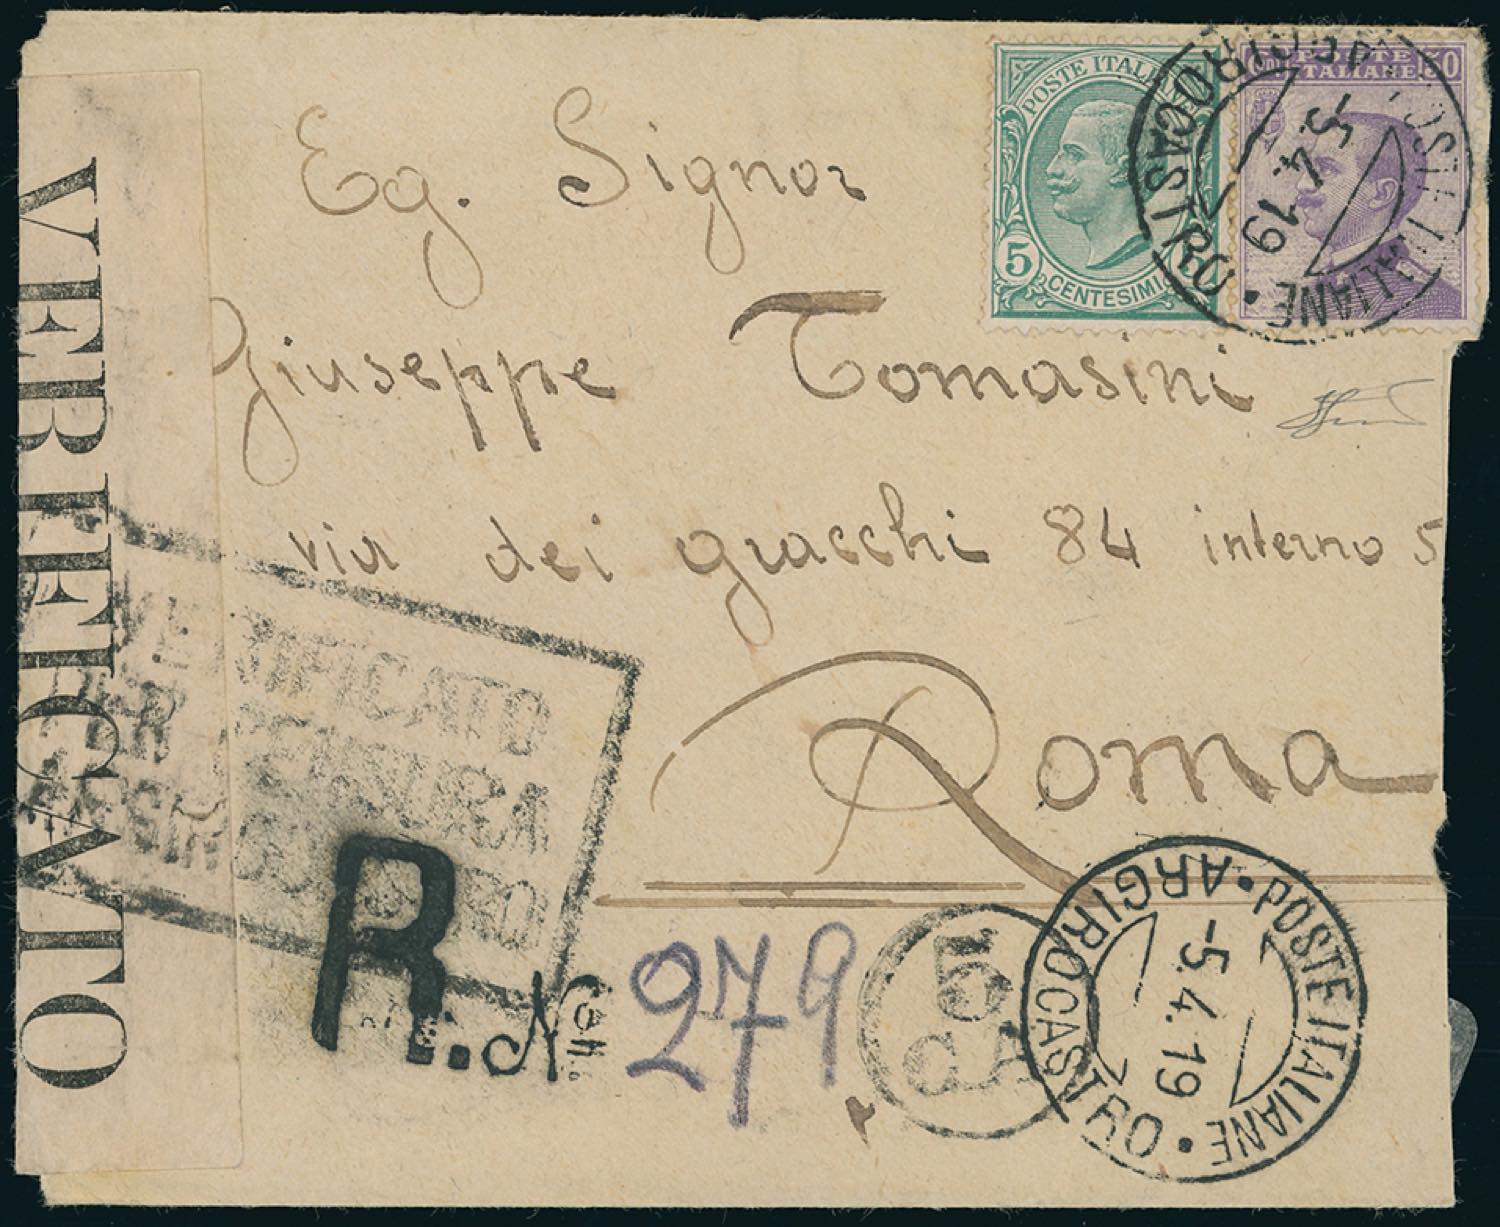 Eg. Signor
Giuseppe Tomasini
via dei gracchi 84 interno 5
Roma
POSTE ITALIANE
5
CENTESIMI
POSTE
ITALIANE
50
POSTE ITALIANE • ARGIROCASTRO •
5.4.19
VERIFICATO
VERIFICATO
PER CENSURA
R. N 279
5
CA
POSTE ITALIANE • ARGIROCASTRO •
-5.4.19